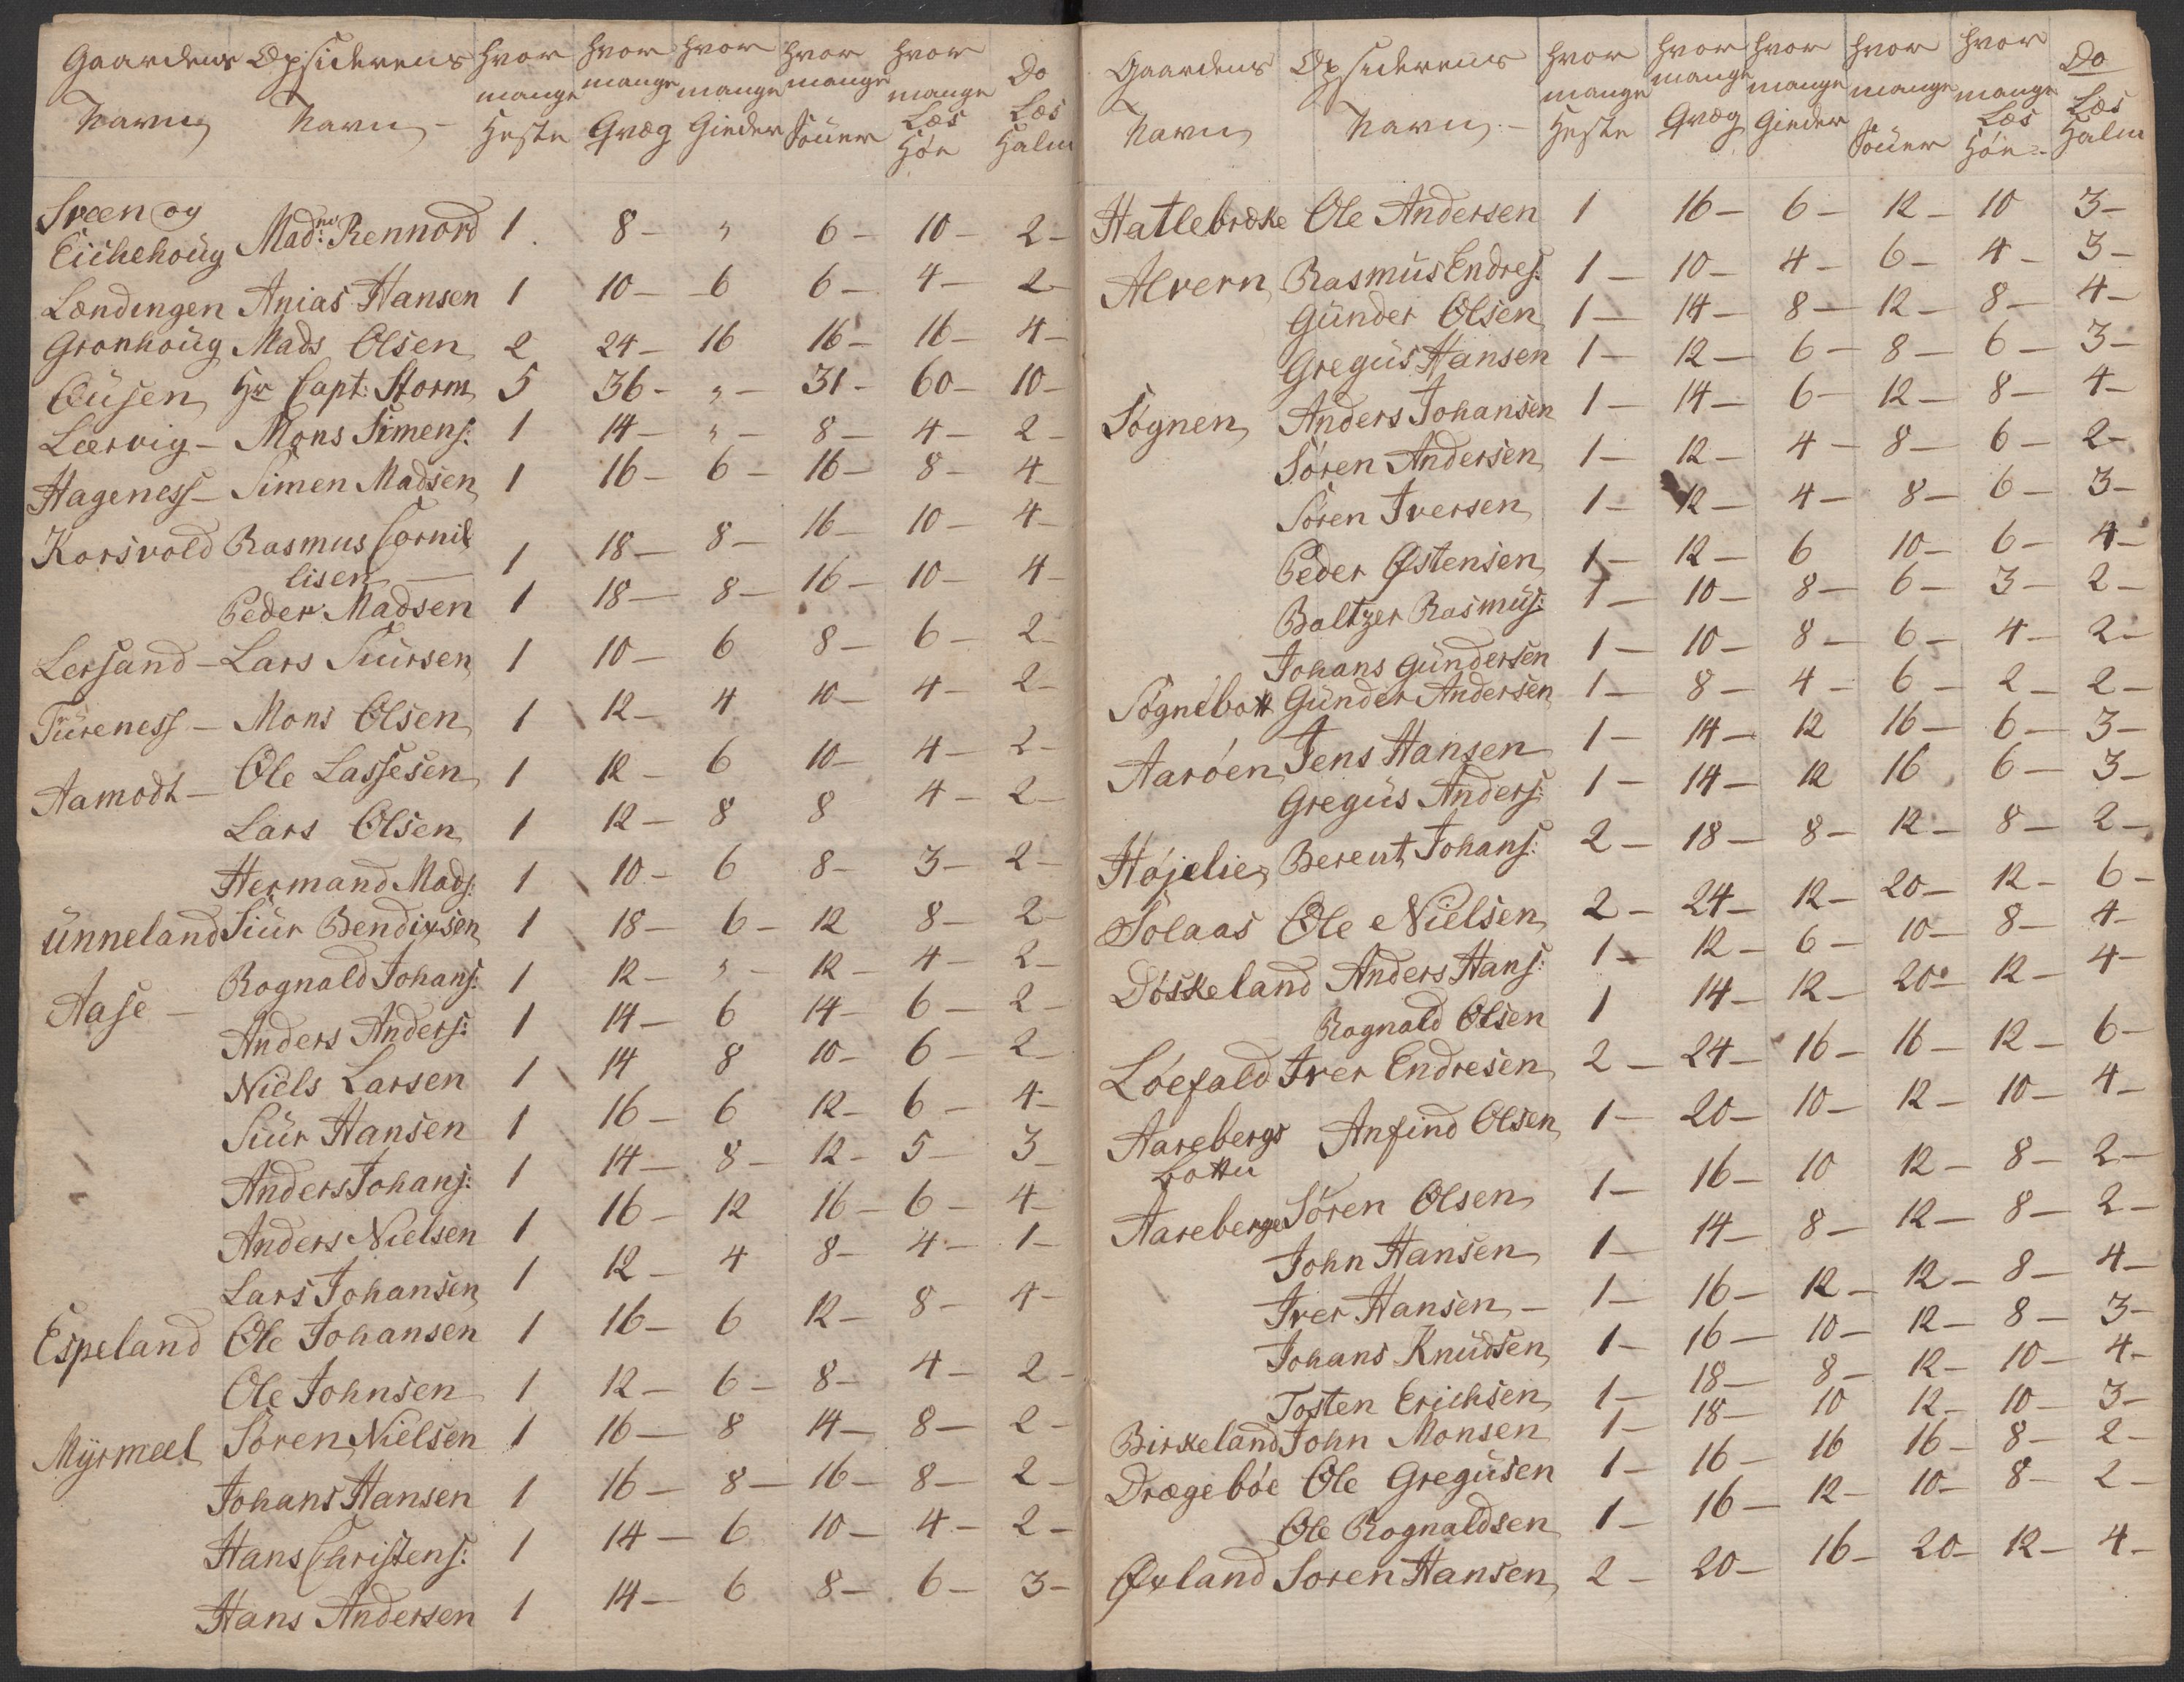 Gaardens Opsiderens hvor hvor hvor hvor hvor Do
mange mange mange mange mange Læs
Navn Navn - Heste Qvæg Gieder Söuer Læs Höe Halm
Sveen og
Eichehoüg Mad:me Rennord 1. 8 - " 6 - 10 - 2 -
Lændingen Anias Hansen 1 10 - 6 6 - 4 - 2 -
Gronhoüg Mads Olsen 2 24 - 16 16 - 16 - 4 -
Oüsen Hr Capt: Storm 5 36 - " - 31 - 60 - 10 -
Lærvig - Mons Simens: 1 14 - " - 8 - 4 - 2 -
Hageness - Simen Madsen 1 16 - 6 - 16 - 8 - 4
Korsvold Rasmus Cornil
lisen - 1 18 - 8 - 16 - 10 - 4 -
Peder Madsen 1 18 - 8 - 16 - 10 - 4 -
Lersand - Lars Siürsen 1 10 - 6 8 - 6 - 2 -
Türeness - Mons Olsen 1 12 - 4 10 - 4 - 2 -
Aamodt - Ole Lassesen 1 12 - 6 10 - 4 - 2 -
Lars Olsen 1 12 - 8 8 4 - 2 -
Hermand Mads: 1 10 - 6 8 - 3 - 2 -
Ünneland Siür Bendixsen 1 18 - 6 - 12 8 - 2 -
Aase - Rognald Johans: 1 12 - " - 12 - 4 - 2 -
Anders Anders: 1 14 - 6 14 - 6 - 2 -
Niels Larsen 1 14 8 10 - 6 - 2 -
Siür Hansen 1 16 - 6 12 - 6 - 4 -
Anders Johans: 1 14 - 8 - 12 - 5 - 3 -
Anders Nielsen 1 16 - 12 16 - 6 - 4 -
Lars Johansen 1 12 - 4 8 - 4 - 1 -
Espeland Ole Johansen 1 16 - 6 12 - 8 - 4 -
Ole Johnsen 1 12 - 6 - 8 - 4 - 2 -
Mÿrmeel Sören Nielsen 1 16 - 8 14 - 8 - 2 -
Johans Hansen 1 16 - 8 - 16 - 8 - 2 -
Hans Christens: 1 14 - 6 10 - 4 - 2 -
Hans Andersen 1 14 - 6 8 - 6 - 3 -
Gaardens Opsiderens hvor hvor hvor hvor hvor Do
mange mange mange mange mange Læs
Navn Navn. - Heste Qvæg Gieder Söuer Læs Höe - Halm
Hatlebræke Ole Andersen 1 16 - 6 - 12 - 10 3 -
Alvern Rasmüs Endres: 1 - 10 - 4 - 6 - 4 - 3 -
Günder Olsen 1 - 14 - 8 - 12 - 8 - 4 -
Gregüs Hansen 1 - 12 - 6 - 8 - 6 - 3 -
Sognen Anders Johansen 1 - 14 - 6 - 12 - 8 - 4 -
Sören Andersen 1 - 12 - 4 - 8 - 6 - 2 -
Sören Iversen 1 - 12 - 4 - 8 - 6 - 3 -
Peder Østensen 1 - 12 - 6 10 - 6 - 4 -
Baltzer Rasmüs: 1 - 10 - 8 - 6 - 3 - 2 -
Johans Gündersen 1 - 10 - 8 - 6 - 4 - 2 -
Sognebott Günder Andersen 1 - 8 - 4 - 6 - 2 - 2 -
Aaröen Jens Hansen 1 - 14 - 12 16 - 6 - 3 -
Gregüs Anders: 1 - 14 - 12 16 6 - 3 -
Höjelie Berent Johans: 2 - 18 - 8 - 12 - 8 - 2 -
Solaas Ole Nielsen 2 - 24 - 12 - 20 - 12 - 6 -
Döskeland Anders Hans: 1 - 12 - 6 - 10 - 8 - 4 -
Rognald Olsen 1 14 - 12 - 20 - 12 - 4 -
Löefald Iver Endresen 2 - 24 - 16 - 16 - 12 - 6 -
Aarebergs Anfind Olsen 1 - 20 - 10 - 12 - 10 - 4 -
Aareberge Sören Olsen 1 - 16 - 10 12 - 8 - 2 -
John Hansen 1 - 14 - 8 - 12 - 8 - 2 -
Iver Hansen - 1 - 16 - 12 - 12 - 8 - 4 -
Johans Knüdsen 1 - 16 - 10 - 12 - 8 - 3 -
Tosten Erichsen 1 - 18 - 8 - 12 - 10 - 4 -
Birkeland John Monsen 1 - 18 - 10 12 - 10 - 3 -
Drægebøe Ole Gregüsen 1 - 16 - 16 16 - 8 - 2 -
Ole Rognaldsen 1 - 16 - 12 - 10 - 8 - 2 -
Øxland Soren Hansen 2 - 20 - 16 - 20 - 12 - 4 -